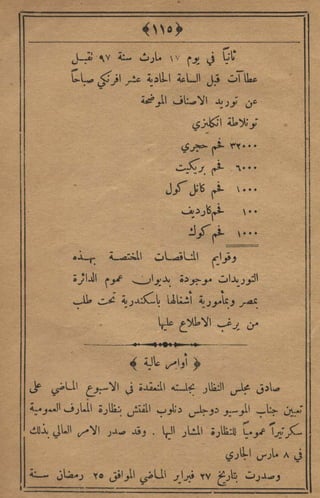 ﴿١١٥﴾
ثانياً في يوم ١٧ مارث سنة ٩٧ نقبل
عطاآت قبل الساعة الحادية عشر افرنكي صباحاً
عن توريد الاصناف الموضحة
تونلاطة انكليزي
٣٢٠٠٠ فحم حجري
٦٠٠٠ فحم بريكيت
١٠٠٠ فحم كانل كول
١٠٠ فحم كارديف
١٠٠٠ فحم كوك
وقوايم المناقصات المختصة بهذه
التوريدات موجودة بديوان عموم الدائرة
بمصر وبمأمورية أشغالها باسكندرية تحت طلب
من يرغب الاطلاع عليها
﴿ أوامر عالية ﴾
صادق مجلس النظار بجلسته المنعقدة في الاسبوع الماضي على
تعيين جناب الموسيو دوجلس دنلوب المفتش بنظارة المعارف العمومية
سكرتيراً عمومياً للنظارة المشار اليها . وقد صدر الامر العالي بذلك
في ٨ مارس الجاري
وصدرت بتاريخ ٢٧ فبراير الماضي الموافق ٢٥ رمضان سنة